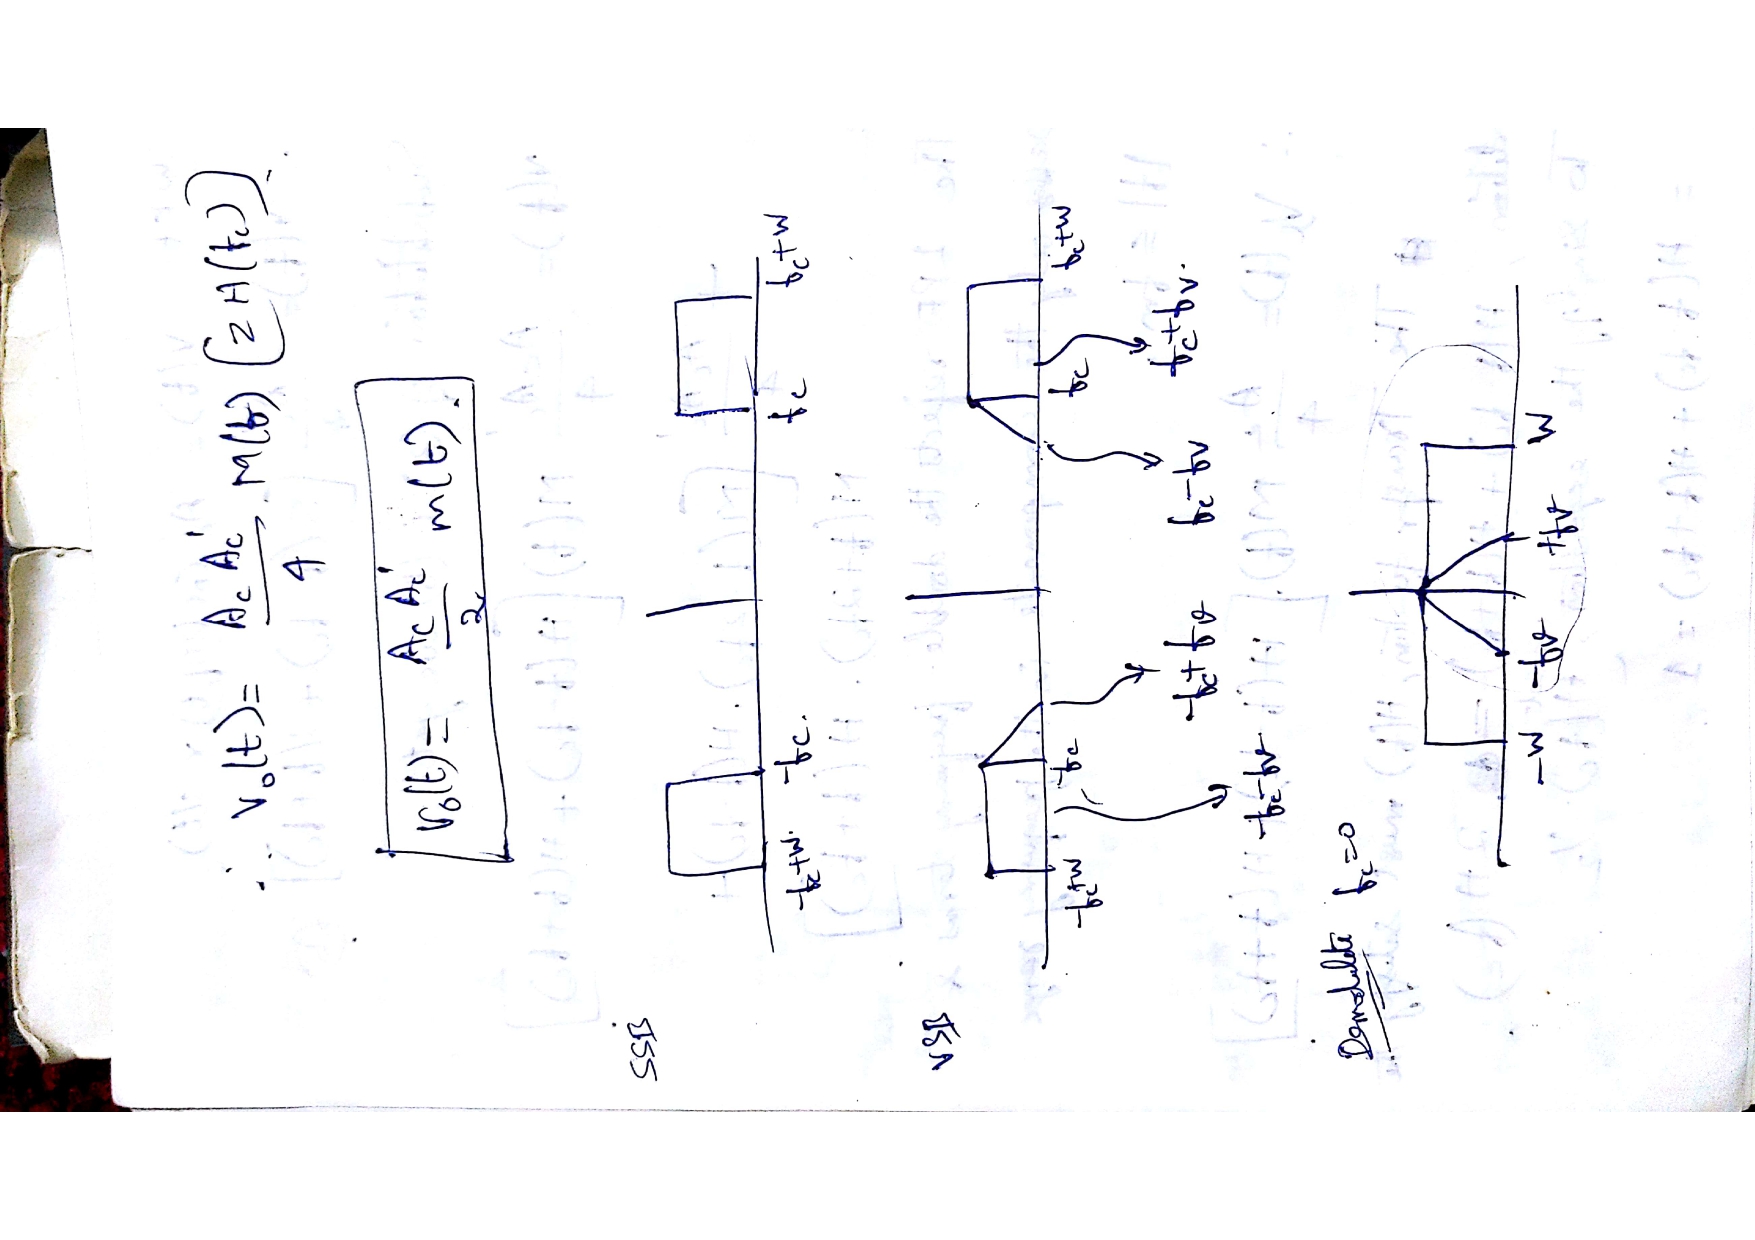 ∴ V₀(t) = Ac Ac' / 4 . M(f) [2 H(fc)]
V₀(t) = Ac Ac' / 2 m(t).
SSB
-fc+W. -fc. fc fc+W
VSB
-fc+W -fc fc fc+W
-fc-fv -fc+fv fc-fv fc+fv.
Demodulate fc=0
-W -fv +fv W